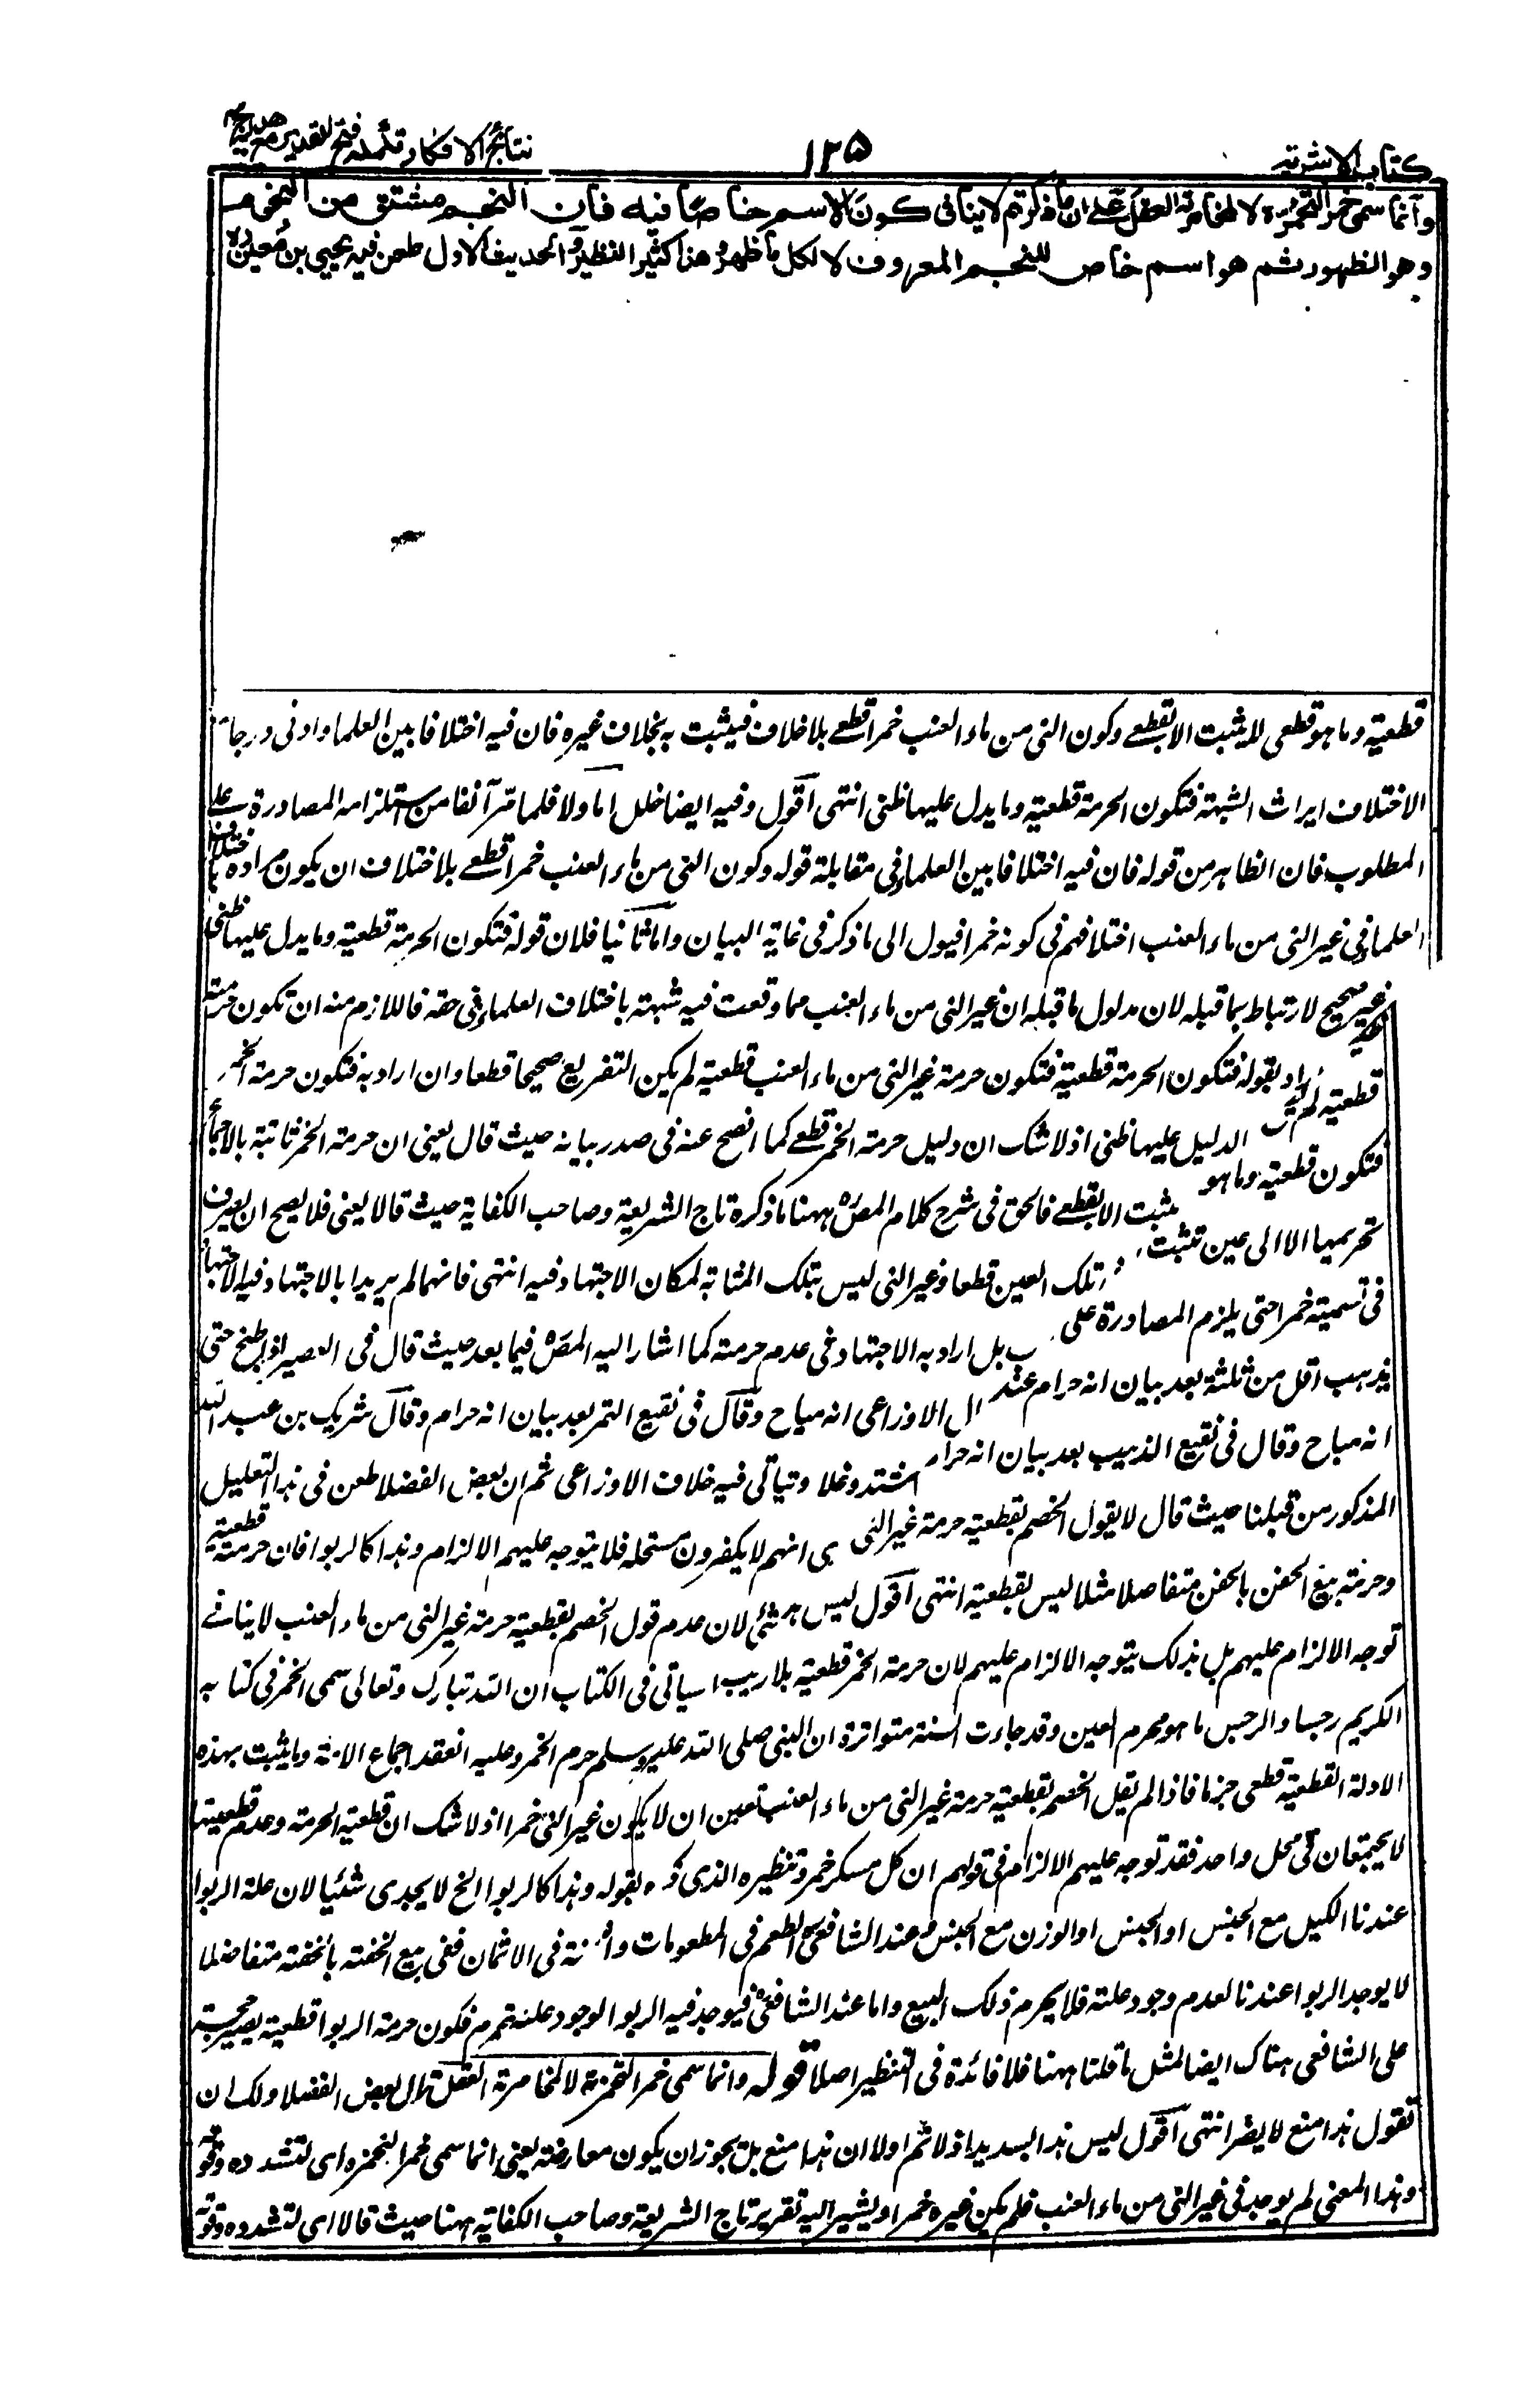 كتاب الاشربة
١٢٥
نتائج الافكار تكملة فتح القدير مع هداية
وانما سمى خمرا لتخمره لا لمخامرته العقل على ان ما ذكرتم لا ينافى كون الاسم خاصا فيه فان النجم مشتق من النجوم
وهو الظهور ثم هو اسم خاص للنجم المعروف لا لكل ما ظهر وهذا كثير النظير والحديث الاول طعن فيه يحيى بن معين
قطعية وما هو قطعى لا يثبت الا بقطعے وكون النى من ماء العنب خمرا قطعے بلا خلاف فيثبت به بخلاف غيره فان فيه اختلافا بين العلما وادنى درجات
الاختلاف ايراث الشبهة فتكون الحرمة قطعية وما يدل عليها ظنى انتهى اقول وفيه ايضا خلل اما اولا فلما مر آنفا من استلزامه المصادرة علے
المطلوب فان الظاهر من قوله فان فيه اختلافا بين العلماء فى مقابلة قوله وكون النى من ماء العنب خمرا قطعے بلا اختلاف ان يكون مراده باختلاف
العلماء فى غير النى من ماء العنب اختلافهم فى كونه خمرا فيول الى ما ذكر فى غاية البيان واما ثانيا فلان قوله فتكون الحرمة قطعية وما يدل عليها ظنى
غير صحيح الارتباط بما قبله لان مدلول ما قبله ان غير النى من ماء العنب مما وقعت فيه شبهة باختلاف العلماء فى حقه فاللازم منه ان تكون حرمته
قطعية اراد بقوله فتكون الحرمة قطعية فتكون حرمة غير النى من ماء العنب قطعية لم يكن التفريع صحيحا قطعا وان اراد به فتكون حرمة الخمر
الدليل عليها ظنى اذ لا شك ان دليل حرمة الخمر قطعے كما افصح عنه فى صدر بيانه حيث قال يعنى ان حرمة الخمر ثابتة بالاجماع
فتكون قطعية وما هو يثبت الا بقطعے فالحق فى شرح كلام المص ههنا ما ذكره تاج الشريعة وصاحب الكفاية حيث قالا يعنى فلا يصح ان يصرف
تحريمها الا الى عين تثبت تلك العين قطعا وغير النى ليس بتلك المثابة لمكان الاجتهاد فيه انتهى فانهما لم يريدا بالاجتهاد فيه الاجتهاد
فى تسميته خمرا حتى يلزم المصادرة على بل ارادا به الاجتهاد فى عدم حرمته كما اشار اليه المص فيما بعد حيث قال فى العصير اذا طبخ حتى
يذهب اقل من ثلثيه بعد بيان انه حرام عند الاوزاعى انه مباح وقال فى نقيع التمر بعد بيان انه حرام وقال شريك بن عبد الله
انه مباح وقال فى نقيع الزبيب بعد بيان انه حرام اشتد وغلا ويتاتى فيه خلاف الاوزاعى ثم ان بعض الفضلا طعن فى هذا التعليل
المذكور من قبلنا حيث قال لا يقول الخصم بقطعية حرمة غير النى انهم لا يكفرون مستحله فلا يتوجه عليهم الالزام وهذا كالربوا فان حرمته قطعية
وحرمة بيع الحفن بالحفن متفاضلا مثلا ليس بقطعية انتهى اقول ليس هذا بشئ لان عدم قول الخصم بقطعية حرمة غير النى من ماء العنب لا ينافى
توجه الالزام عليهم بل بذلك يتوجه الالزام عليهم لان حرمة الخمر قطعية بلا ريب سياتى فى الكتاب ان الله تبارك وتعالى سمى الخمر فى كتابه
الكريم رجسا والرجس ما هو محرم العين وقد جاءت السنة متواترة ان النبى صلى الله عليه وسلم حرم الخمر وعليه انعقد اجماع الامة وما يثبت بهذه
الادلة القطعية قطعى جزما فاذا لم يقل الخصم بقطعية حرمة غير النى من ماء العنب تعين ان لا يكون غير النى خمرا اذ لا شك ان قطعية الحرمة وعدم قطعيتها
لا يجتمعان فى محل واحد فقد توجه عليهم الالزام فى قولهم ان كل مسكر خمر وتنظيره الذى ذكره بقوله وهذا كالربوا الخ لا يجدى شئيا لان علة الربوا
عندنا الكيل مع الجنس او الوزن مع الجنس وعند الشافعى الطعم فى المطعومات والثمنية فى الاثمان ففى بيع الحفنة بالحفنة متفاضلا
لا يوجد الربوا عندنا لعدم وجود علته فلا يحرم ذلك البيع واما عند الشافعى فيوجد فيه الربوا لوجود علته فتكون حرمة الربوا قطعية يصير حجة
على الشافعى هناك ايضا لمثل ما قلنا ههنا فلا فائدة فى التنظير اصلا قوله وانما سمى خمرا لتخمره لا لمخامرته العقل قال بعض الفضلا ولك ان
تقول هذا منع لا يضر انتهى اقول ليس هذا بسديد اذ لا ثم اولا ان هذا منع بل يجوز ان يكون معارضة يعنى انما سمى خمرا لتخمره اى لتشدده وقوته
وهذا المعنى لم يوجد فى غير النى من ماء العنب فلم يكن غيره خمرا ويشير اليه تقرير تاج الشريعة وصاحب الكفاية ههنا حيث قالا اى لتشدده وقوته